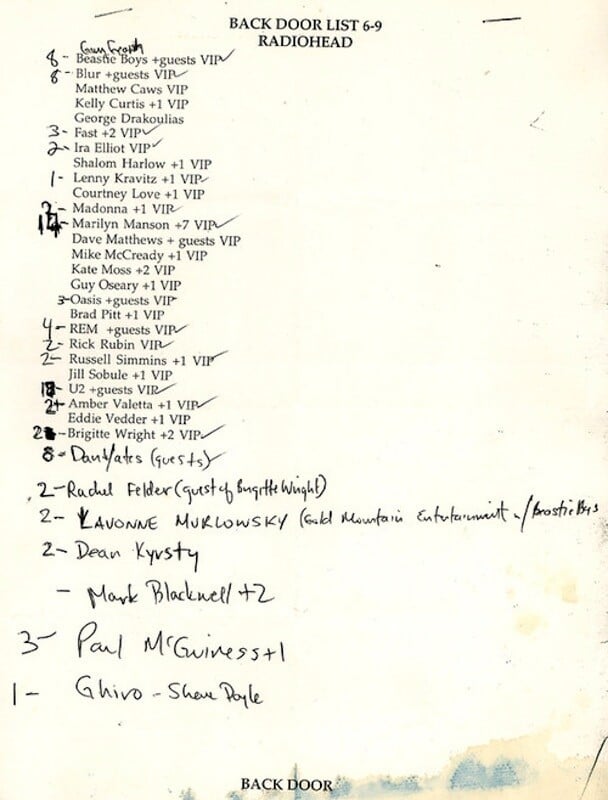 BACK DOOR LIST 6-9
RADIOHEAD
8- Beastie Boys +guests VIP ✓
8- Blur +guests VIP ✓
Matthew Caws VIP
Kelly Curtis +1 VIP
George Drakoulias
3- Fast +2 VIP ✓
2- Ira Elliot VIP ✓
Shalom Harlow +1 VIP
1- Lenny Kravitz +1 VIP ✓
Courtney Love +1 VIP
Madonna +1 VIP ✓
Marilyn Manson +7 VIP ✓
Dave Matthews + guests VIP
Mike McCready +1 VIP
Kate Moss +2 VIP
Guy Oseary +1 VIP
3-Oasis +guests VIP
Brad Pitt +1 VIP
4- REM +guests VIP ✓
2- Rick Rubin VIP ✓
2- Russell Simmins +1 VIP ✓
Jill Sobule +1 VIP
U2 +guests VIP ✓
Amber Valetta +1 VIP ✓
Eddie Vedder +1 VIP
Brigitte Wright +2 VIP ✓
8- (guests) ✓
2-Rachel Felder (guest of Brigitte Wright)
2- LAVONNE MURLOWSKY (Gold Mountain Entertainment w/Beastie Boys
2- Dean Kyrsty
- Mark Blackwell +2
3- Paul McGuiness +1
1- Ghiro - Shane Doyle
BACK DOOR